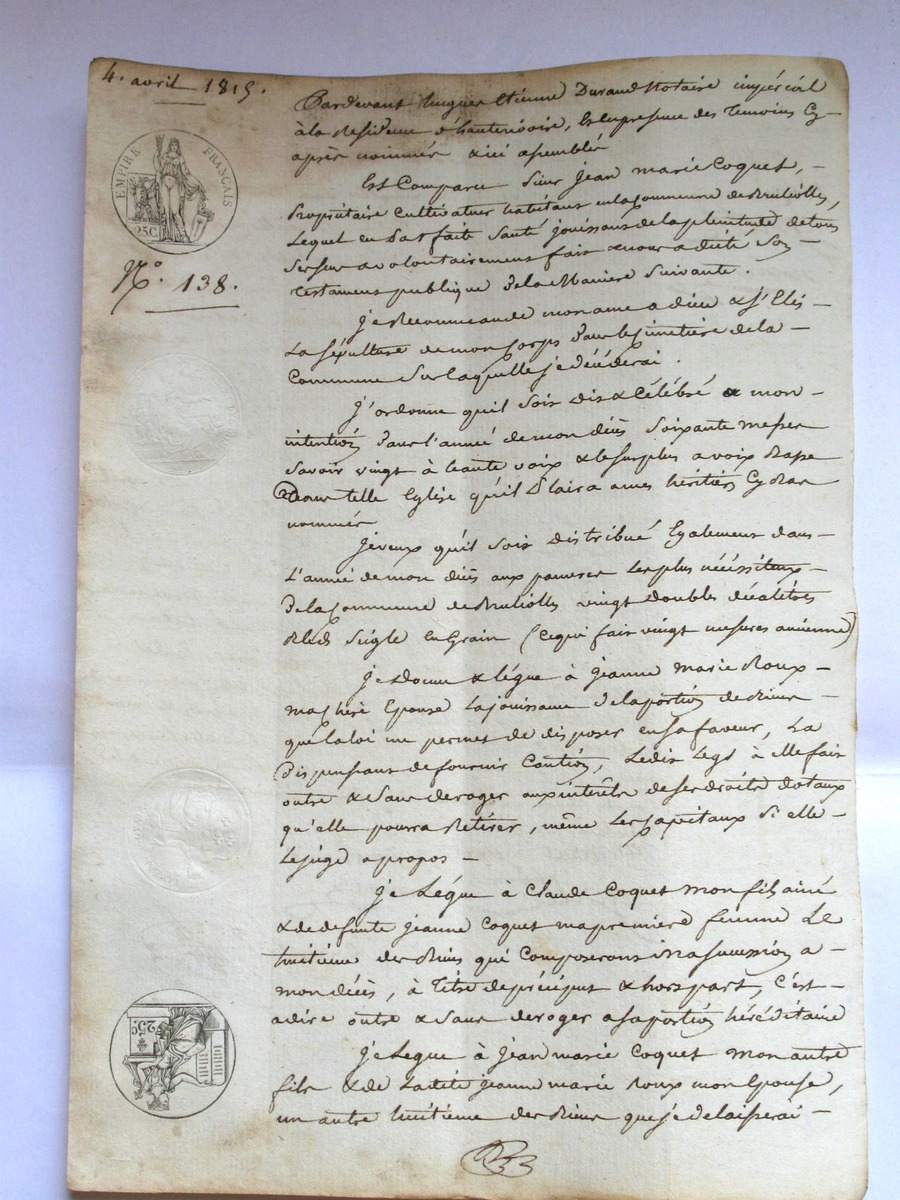 4. avril 1815.
EMPIRE FRANÇAIS
25C.
N.° 138.
Pardevant hugues Etienne Durand Notaire impérial
à la Residence d'hauterivoire, Et en presence des Temoins Cy-
après nommés & icé asemblés
Est Comparu Sieur Jean marie Coquet, -
Propriétaire Cultivateur habitant en la Commune de Brulliolles,
Lequel en Parfaite Santé jouissant de la pleinitude de tous
Ses sens a volontairement fait & nous a dicté Son -
Testament publique De la Maniere Suivante.
je Recommande mon ame a dieu & j'Elis -
La sépulture de mon Corps Dans le Cimetiere de la -
Commune Sur Laquelle je décéderai.
j'ordonne qu'il soit dit & Célébré a mon -
intention Dans l'année de mon décès Soixante messes
Savoir vingt à haute voix & le surplus a voix Basse
Dans telle Eglise qu'il Plaira a mes héritiers Cy Bas
nommés
je veux qu'il soit distribué Egalement dans -
L'année de mon décès aux pauvres Les plus nécéssiteux -
De la Commune de Brulliolles vingt doubles décalitres
Bled Seigle en Grain (ce qui fait vingt mesures anciennes)
je donne & légue à jeanne Marie Roux -
ma chère Epouse La jouissance De la portion de Biens -
que la loi me permet de disposer en sa faveur, La
Dispensant de fournir Caution, Ledit Legs à elle fait
outre & Sans deroger aux intérêts de ses droits dotaux
qu'elle pourra Retirer, même Les Capitaux Si elle -
Le juge apropos -
je Légue à Claude Coquet mon fils ainé
& de defunte jeanne Coquet ma premiere femme Le
huitieme des Biens qui Composeront ma succession a -
mon décès, à Titre de préciput & hors part, C'est -
adire outre & Sans deroger a sa portion héréditaire
je Legue à jean marie Coquet mon autre
fils & de Ladite jeanne marie Roux mon Epouse,
un autre huitieme des Biens que je delaisserai -
25C.